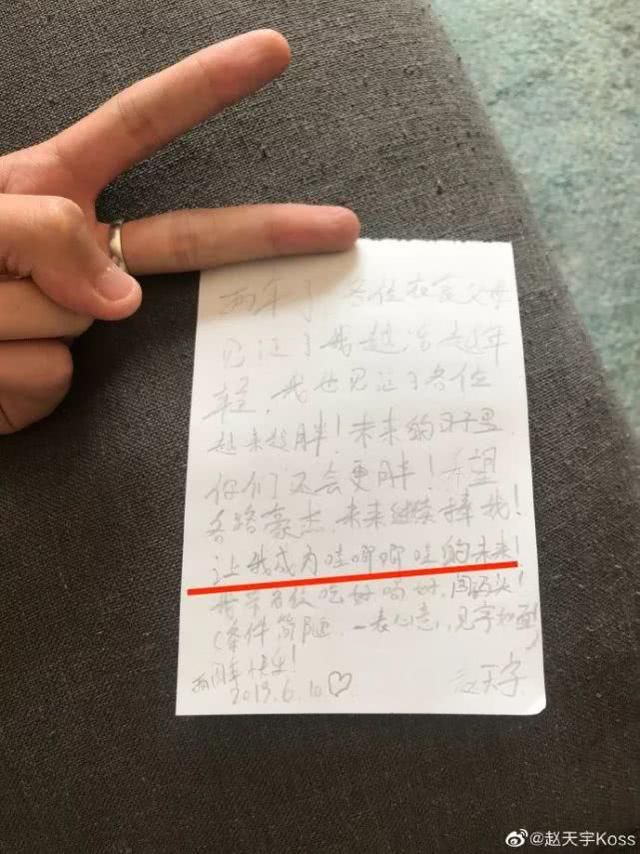 两年了，各位衣食父母
见证了我越活越年
轻，我也见证了各位
越来越胖！未来的日子里
你们还会更胖！希望
各路豪杰，未来继续捧我！
让我成为哇唧唧哇的未来！
我带各位吃好喝好，闯码头！
(条件简陋，一表心意，见字如面)
两周年快乐！
2019.6.10♡
赵天宇
@赵天宇Koss